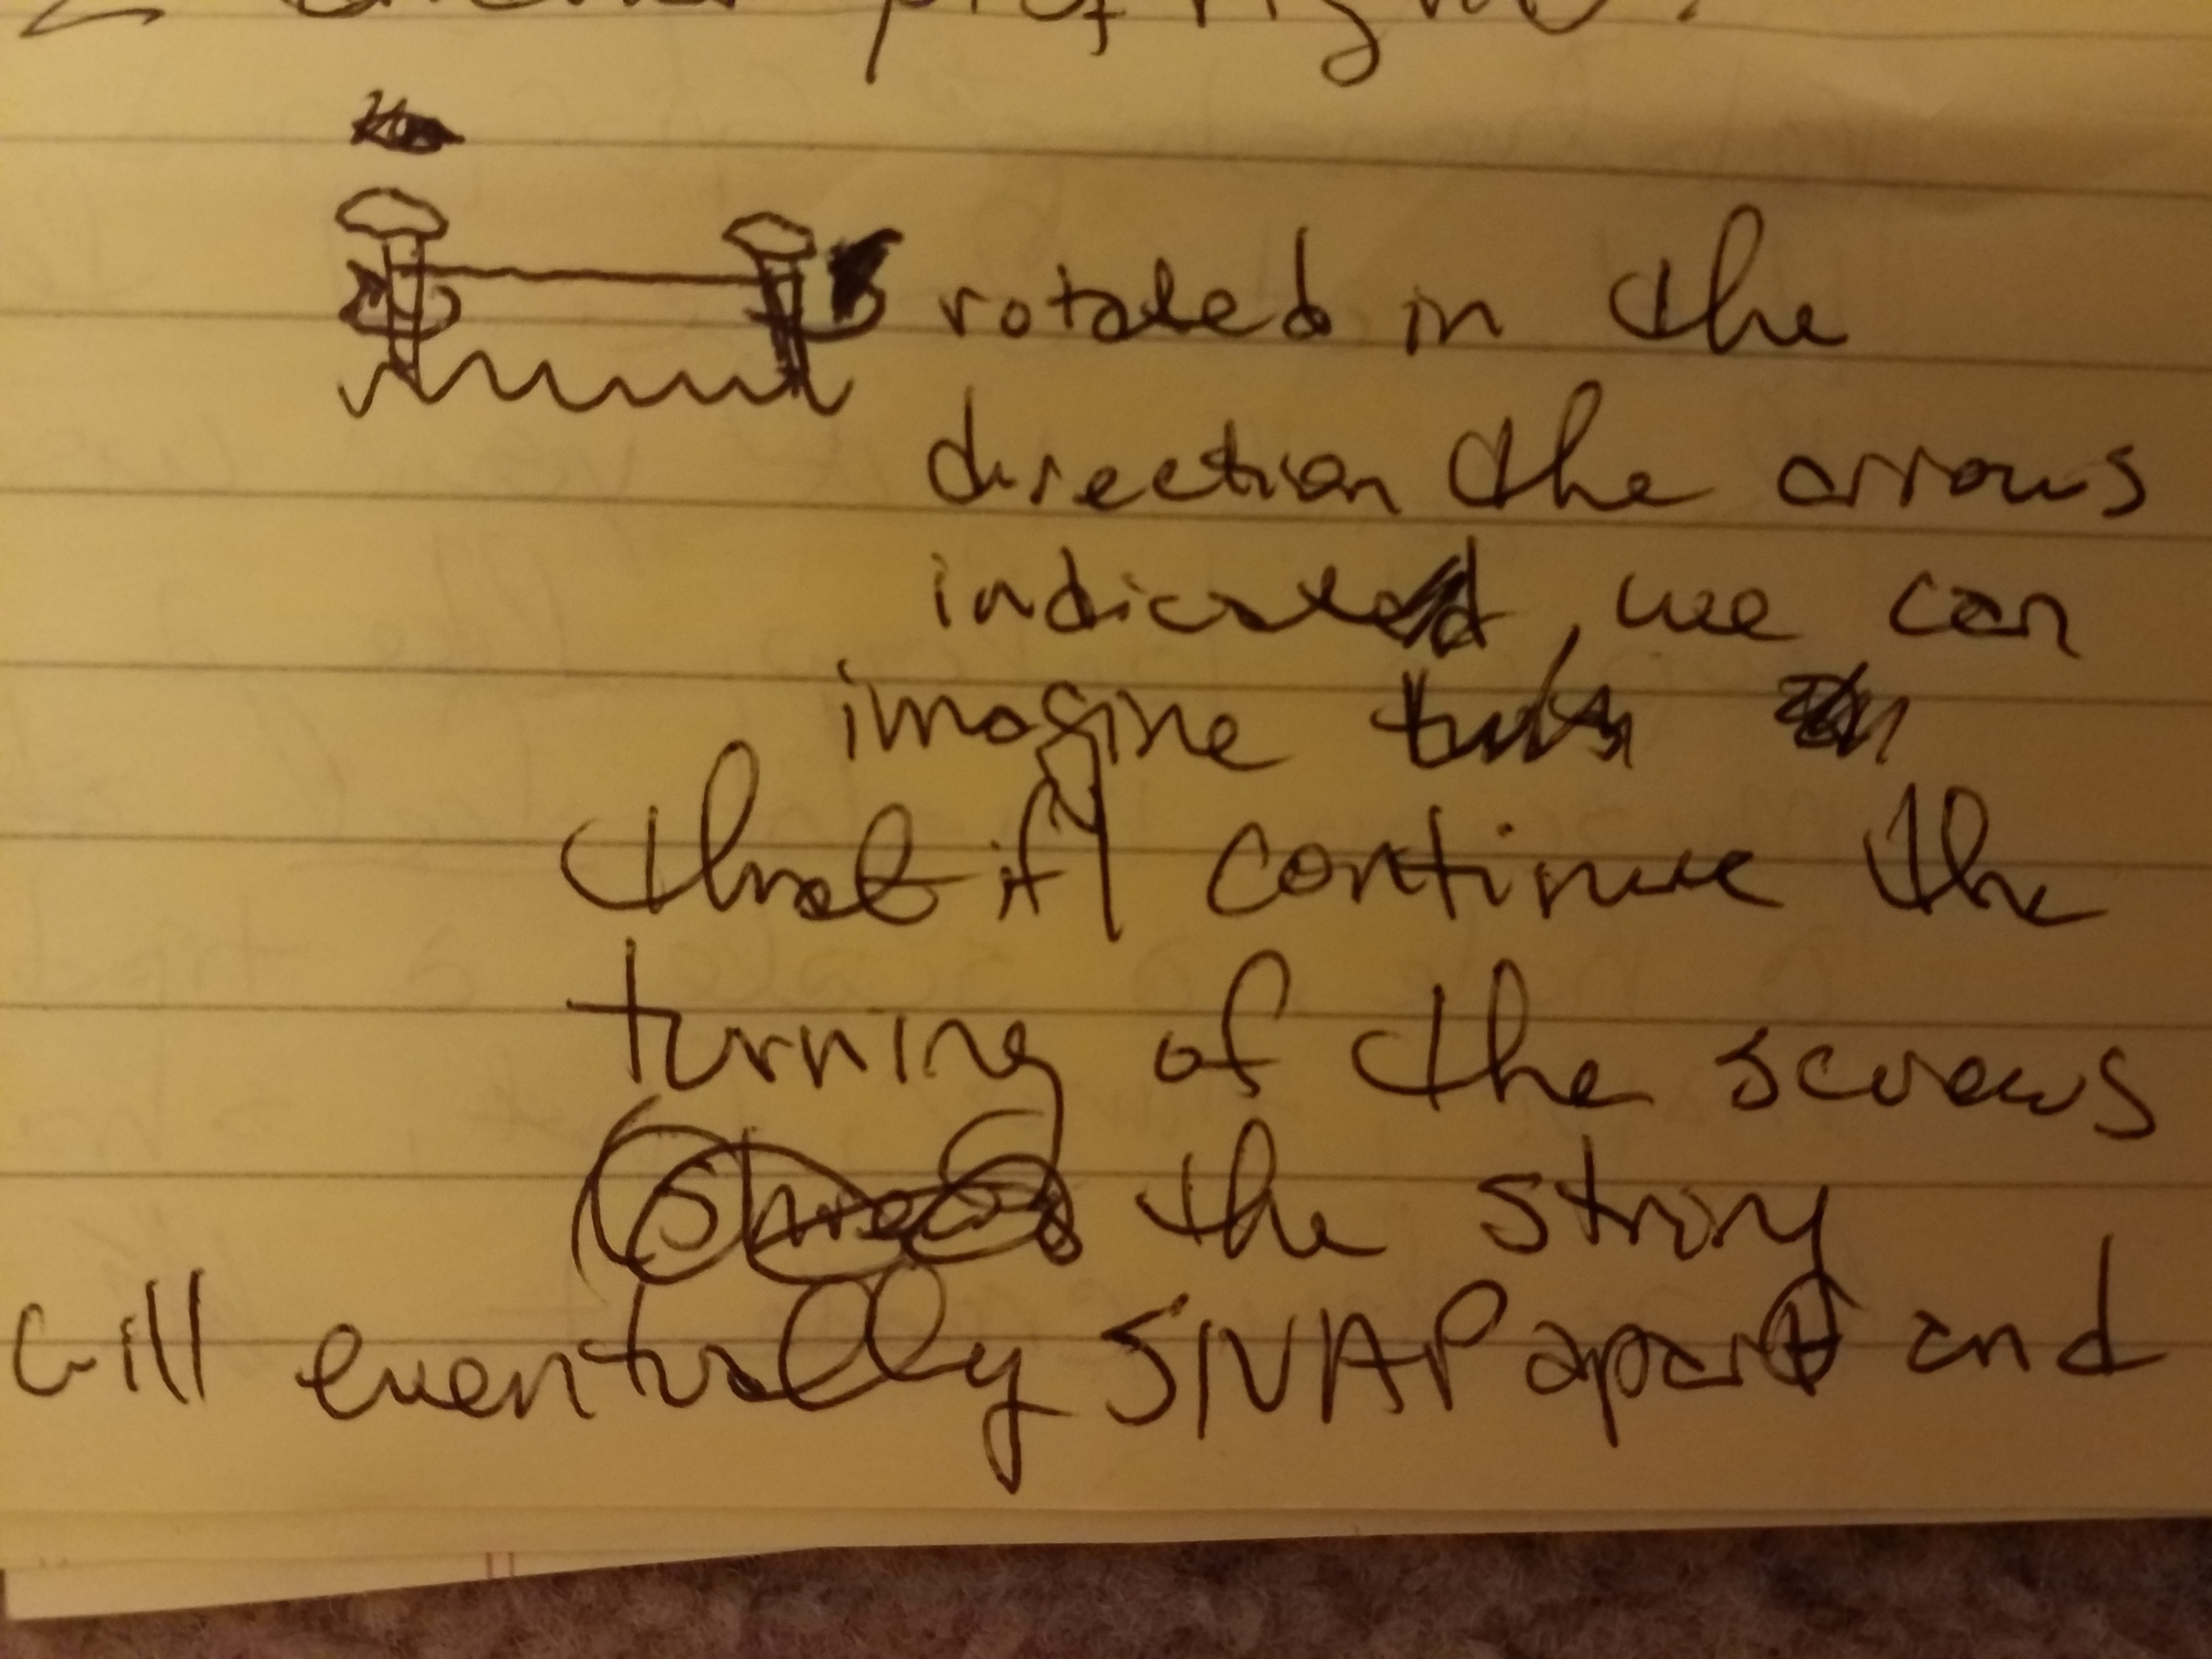 rotated in the
direction the arrows
indicated, we can
imagine
that if continue the
turning of the screws
the string
will eventually SNAP apart and